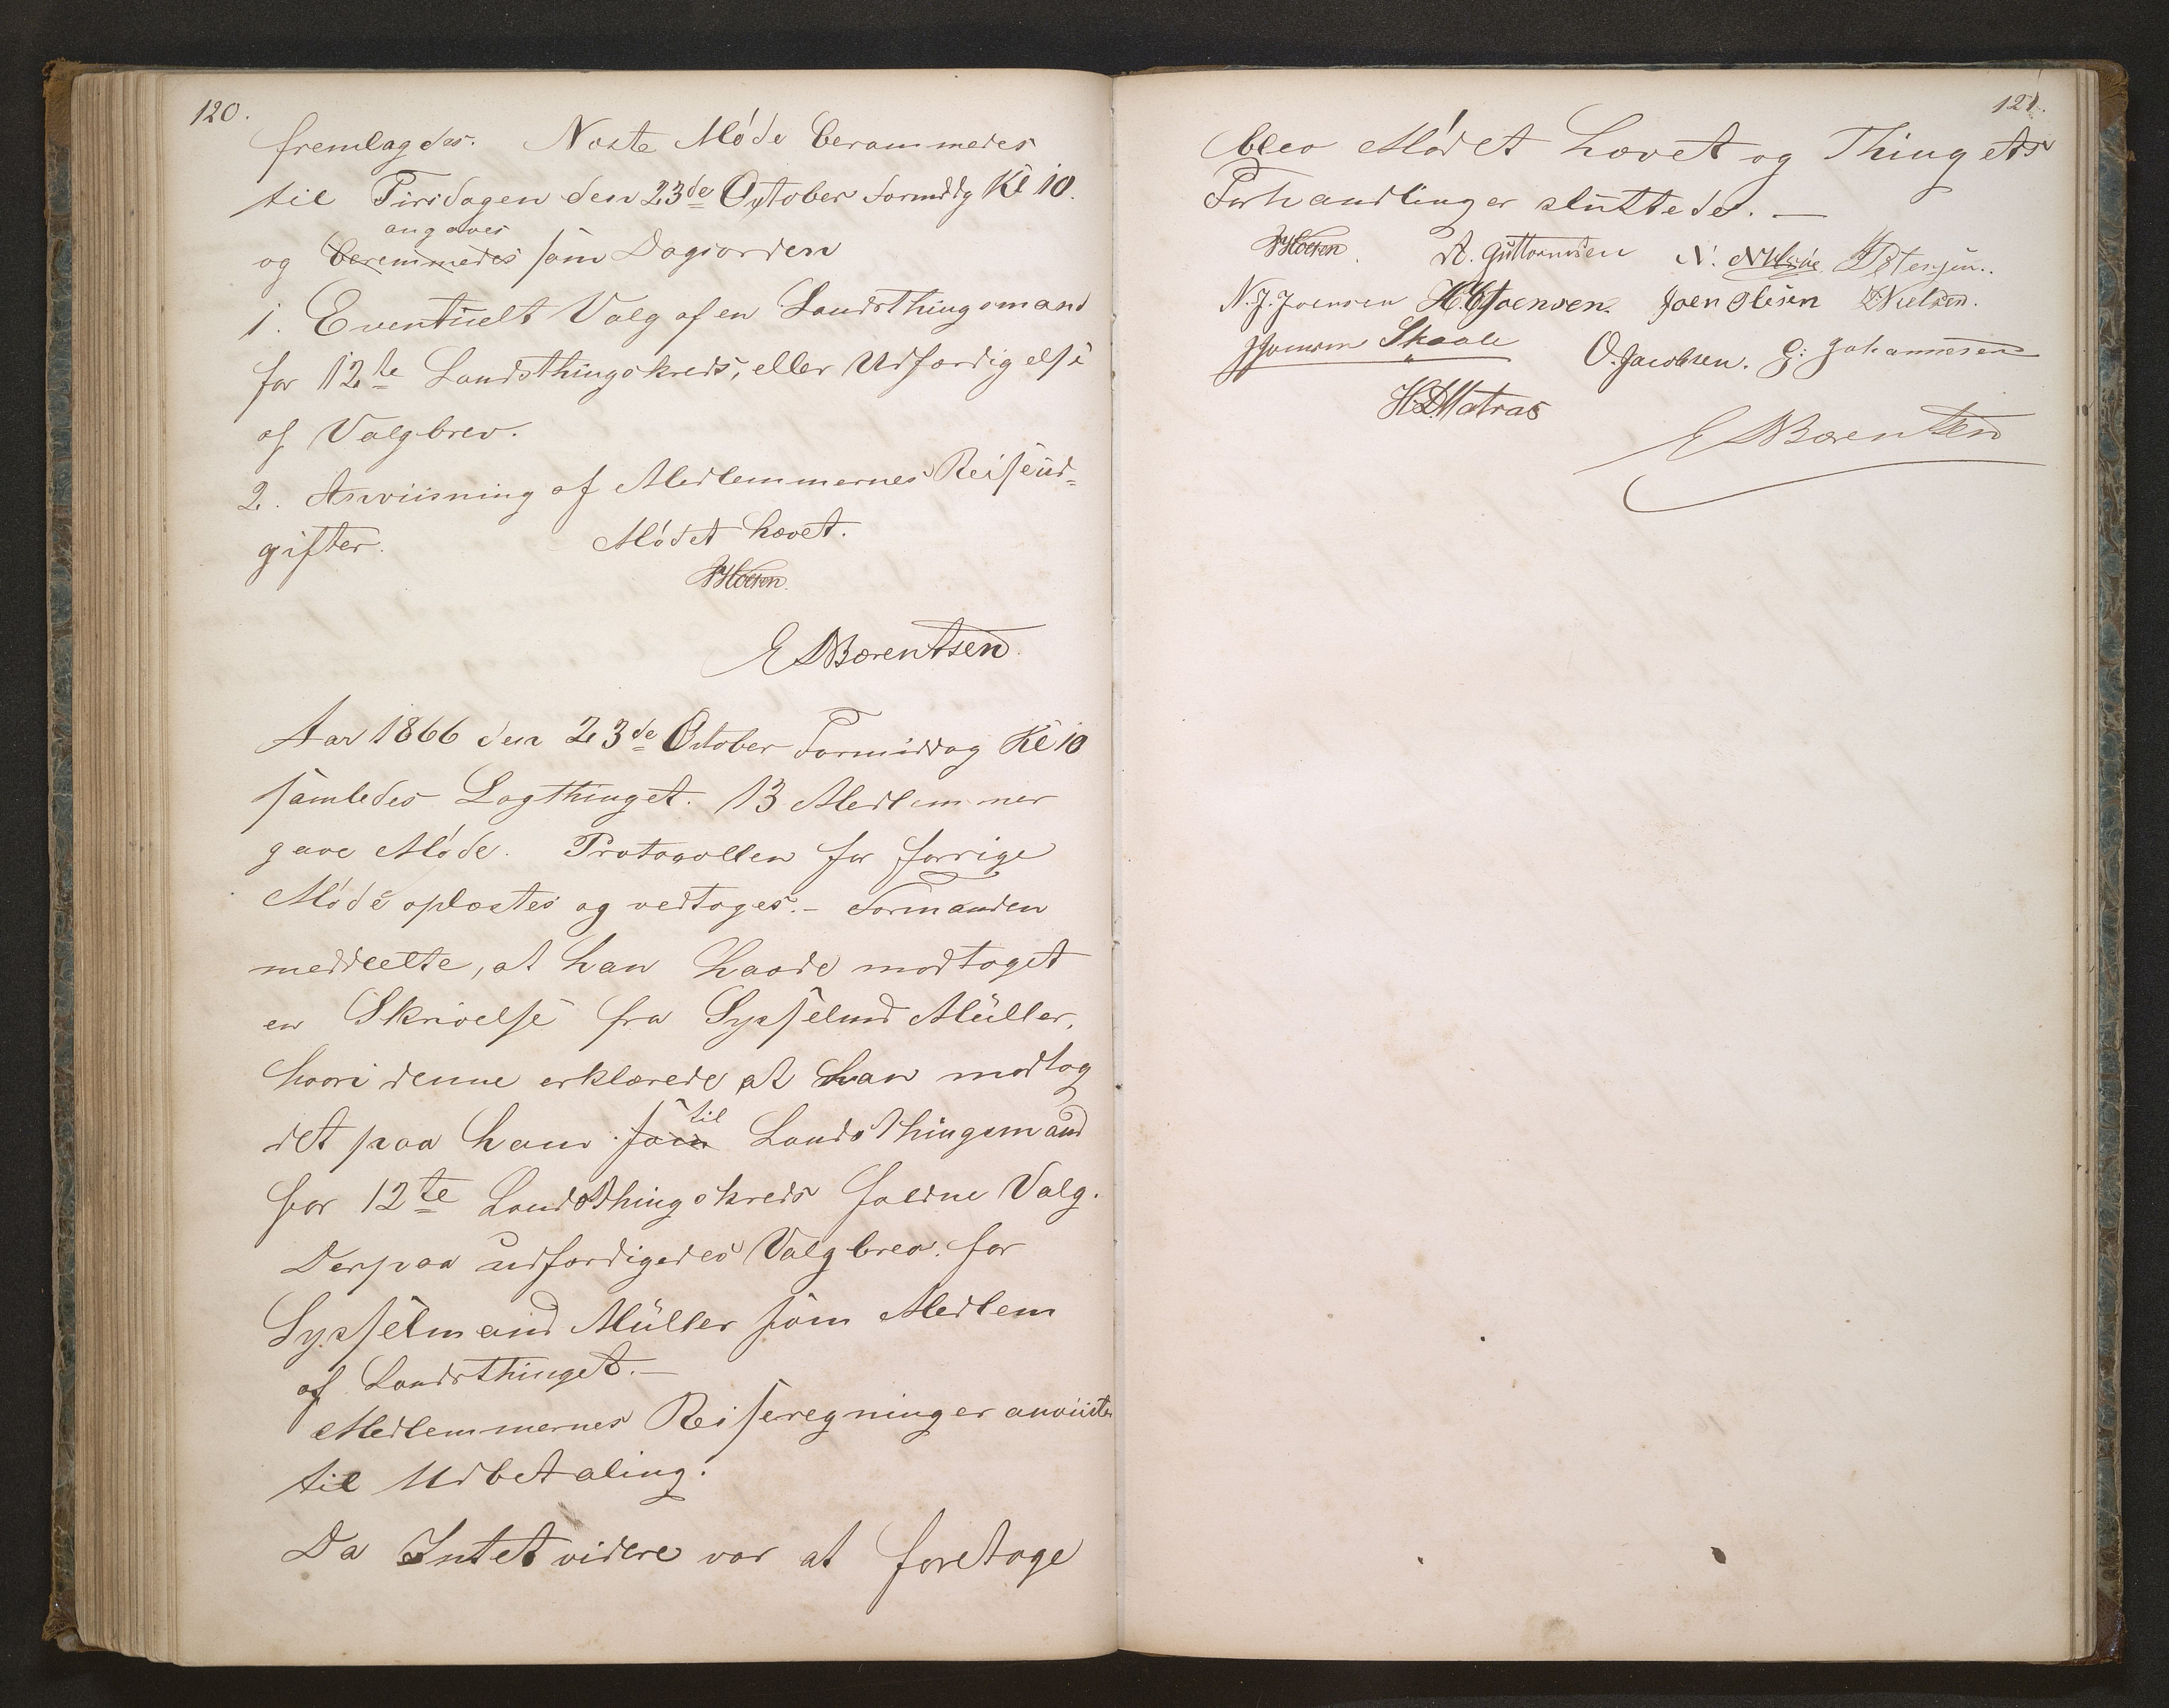 120.
fremlagdes. Næste Møde berammedes
til Tirsdagen den 23de October Formdg Kl 10.
angaves
og beremmedes som Dagsorden
1. Eventuelt Valg af en Landsthingsmand
for 12te Landsthingskreds, eller Udfærdigelse
af Valgbrev.
2. Anviisning af Medlemmernes Reiseud-
gifter. Mødet hævet.
E Bærentsen
Aar 1866 den 23de October Formiddag Kl 10
samledes Lagthinget. 13 Medlemmer
gave Møde. Protocollen for forrige
Møde oplæstes og vedtoges. - Formanden
meddeelte, at han havde modtaget
en Skrivelse fra Sysselmd Müller,
hvori denne erklærede at han modtog
til
det paa ham som Landsthingsmand
for 12te Landsthingskreds faldne Valg.
Derpaa udfærdigedes Valgbrev for
Sysselmand Müller som Medlem
af Landsthinget. -
Medlemmernes Reiseregninger anviiste
til Udbetaling.
Da Intet videre var at foretage
121.
blev Mødet hævet og Thingets
Forhandlinger sluttede. -
A. Guttormsen Petersen.
N. J. Joensen H. C. Joensen. Joen Olsen Nielsen.
J Joensen Skaale O. Jacobsen. G: Johannesen
H. D. Matras
E Bærentsen